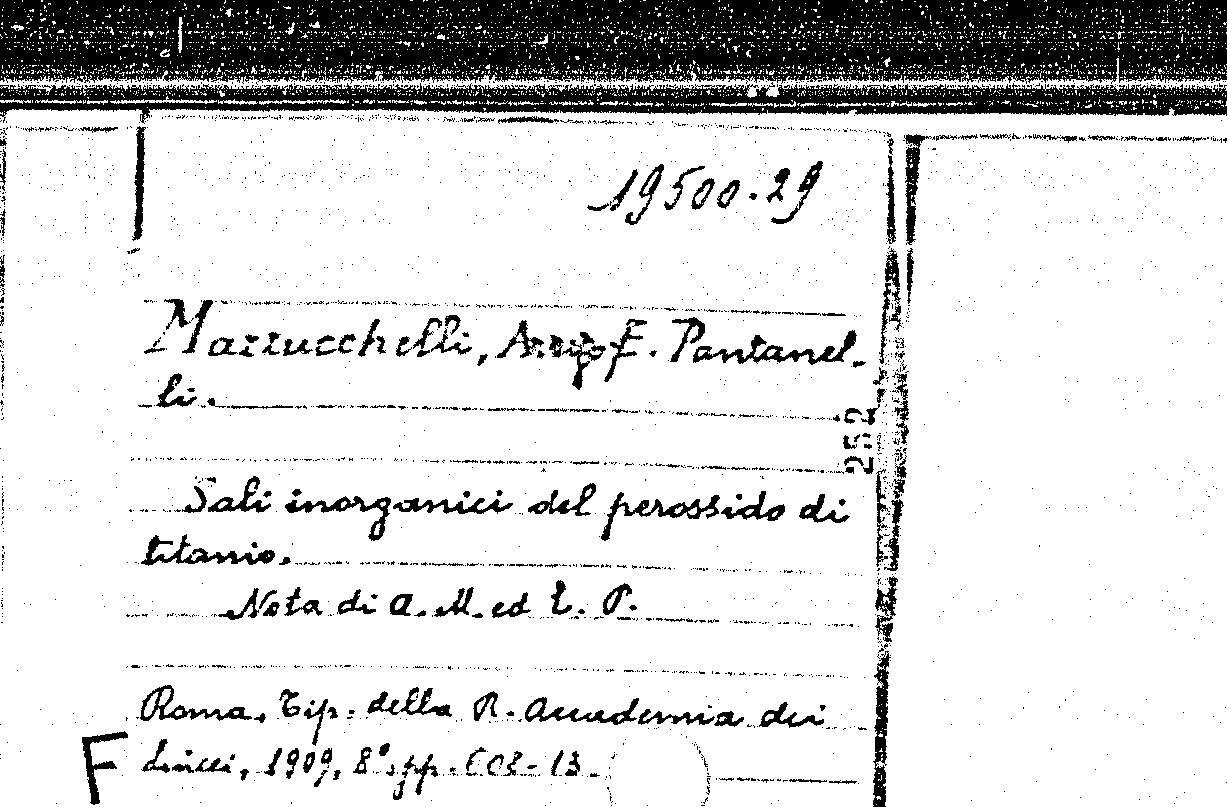 19500.29
Mazzucchelli, Arrigo, E. Pantanel-
li.
252
Sali inorganici del perossido di
titanio.
Nota di A. M. ed E. P.
Roma, Tip. della R. Accademia dei
F
Lincei, 1909, 8°, pp.